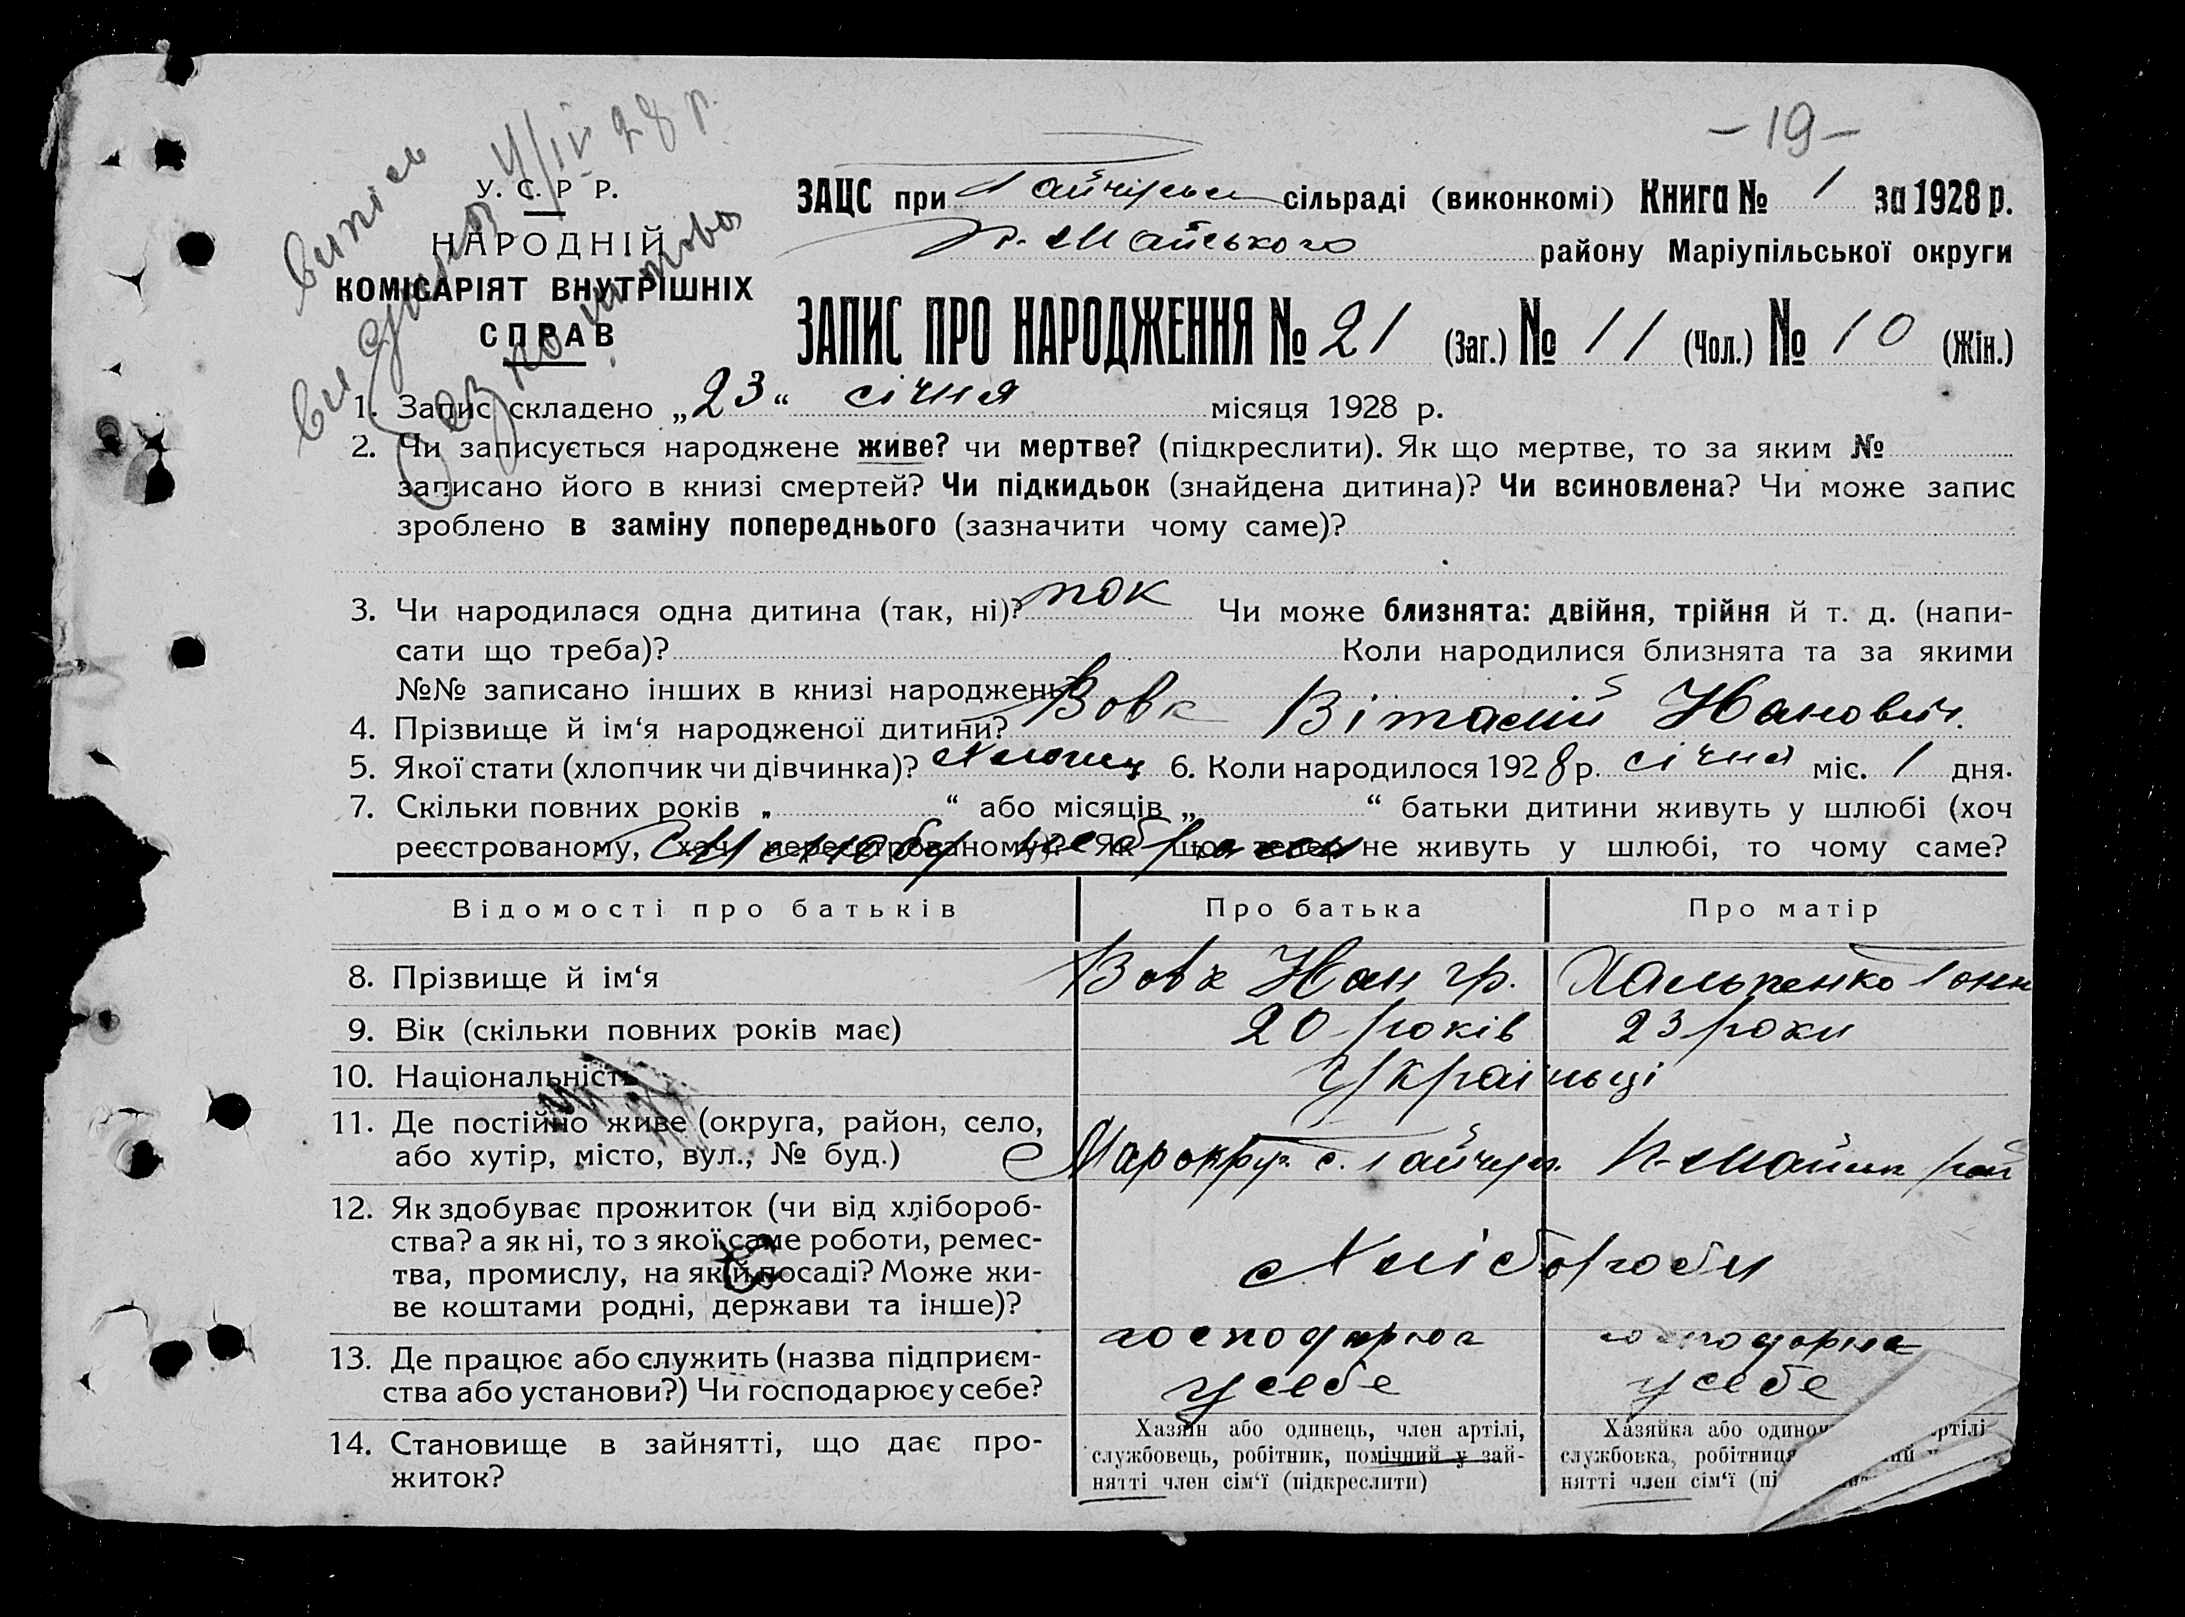 -19-
випись
видана 4/IV 28 р.
безкоштовно
У. С. Р Р.
НАРОДНІЙ
КОМІСАРІЯТ ВНУТРІШНІХ
СПРАВ
ЗАЦС при Гайчурськ сільраді (виконкомі) Книга № 1 за 1928 р.
П.-Майського району Маріупільської округи
ЗАПИС ПРО НАРОДЖЕННЯ № 21 (Заг.) № 11 (Чол.) № 10 (Жін.)
1. Запис складено „23“ січня місяця 1928 р.
2. Чи записується народжене живе? чи мертве? (підкреслити). Як що мертве, то за яким №
записано його в книзі смертей? Чи підкидьок (знайдена дитина)? Чи всиновлена? Чи може запис
зроблено в заміну попереднього (зазначити чому саме)?
3. Чи народилася одна дитина (так, ні)? так Чи може близнята: двійня, трійня й т. д. (напи-
сати що треба)? Коли народилися близнята та за якими
№№ записано інших в книзі народжень?
4. Прізвище й ім‘я народженої дитини? Вовк Віталій Иванович.
5. Якої стати (хлопчик чи дівчинка)? Хлопец 6. Коли народилося 1928 р. січня міс. 1 дня.
7. Скільки повних років „ “ або місяців „ “ батьки дитини живуть у шлюбі (хоч
реєстрованому, хоч нереєстрованому)? Як що тепер не живуть у шлюбі, то чому саме?
Відомості про батьків Про батька Про матір
8. Прізвище й ім‘я Вовк Иван Гр. Хальченко Ганн
9. Вік (скільки повних років має) 20 років 23 роки
10. Національність Українці
11. Де постійно живе (округа, район, село,
або хутір, місто, вул., № буд.) Марокруг. с. Гайчур. П-Майськ рай
12. Як здобуває прожиток (чи від хлібороб-
ства? а як ні, то з якої саме роботи, ремес-
тва, промислу, на якій посаді? Може жи-
ве коштами родні, держави та інше)?
Хлібороби
13. Де працює або служить (назва підприєм-
ства або установи?) Чи господарює у себе?
господарює господарює
у себе у себе
14. Становище в зайнятті, що дає про-
житок?
Хазяїн або одинець, член артілі,
службовець, робітник, помічний у зай-
нятті член сім‘ї (підкреслити)
Хазяйка або
службовка, робітниця
нятті член сім‘ї